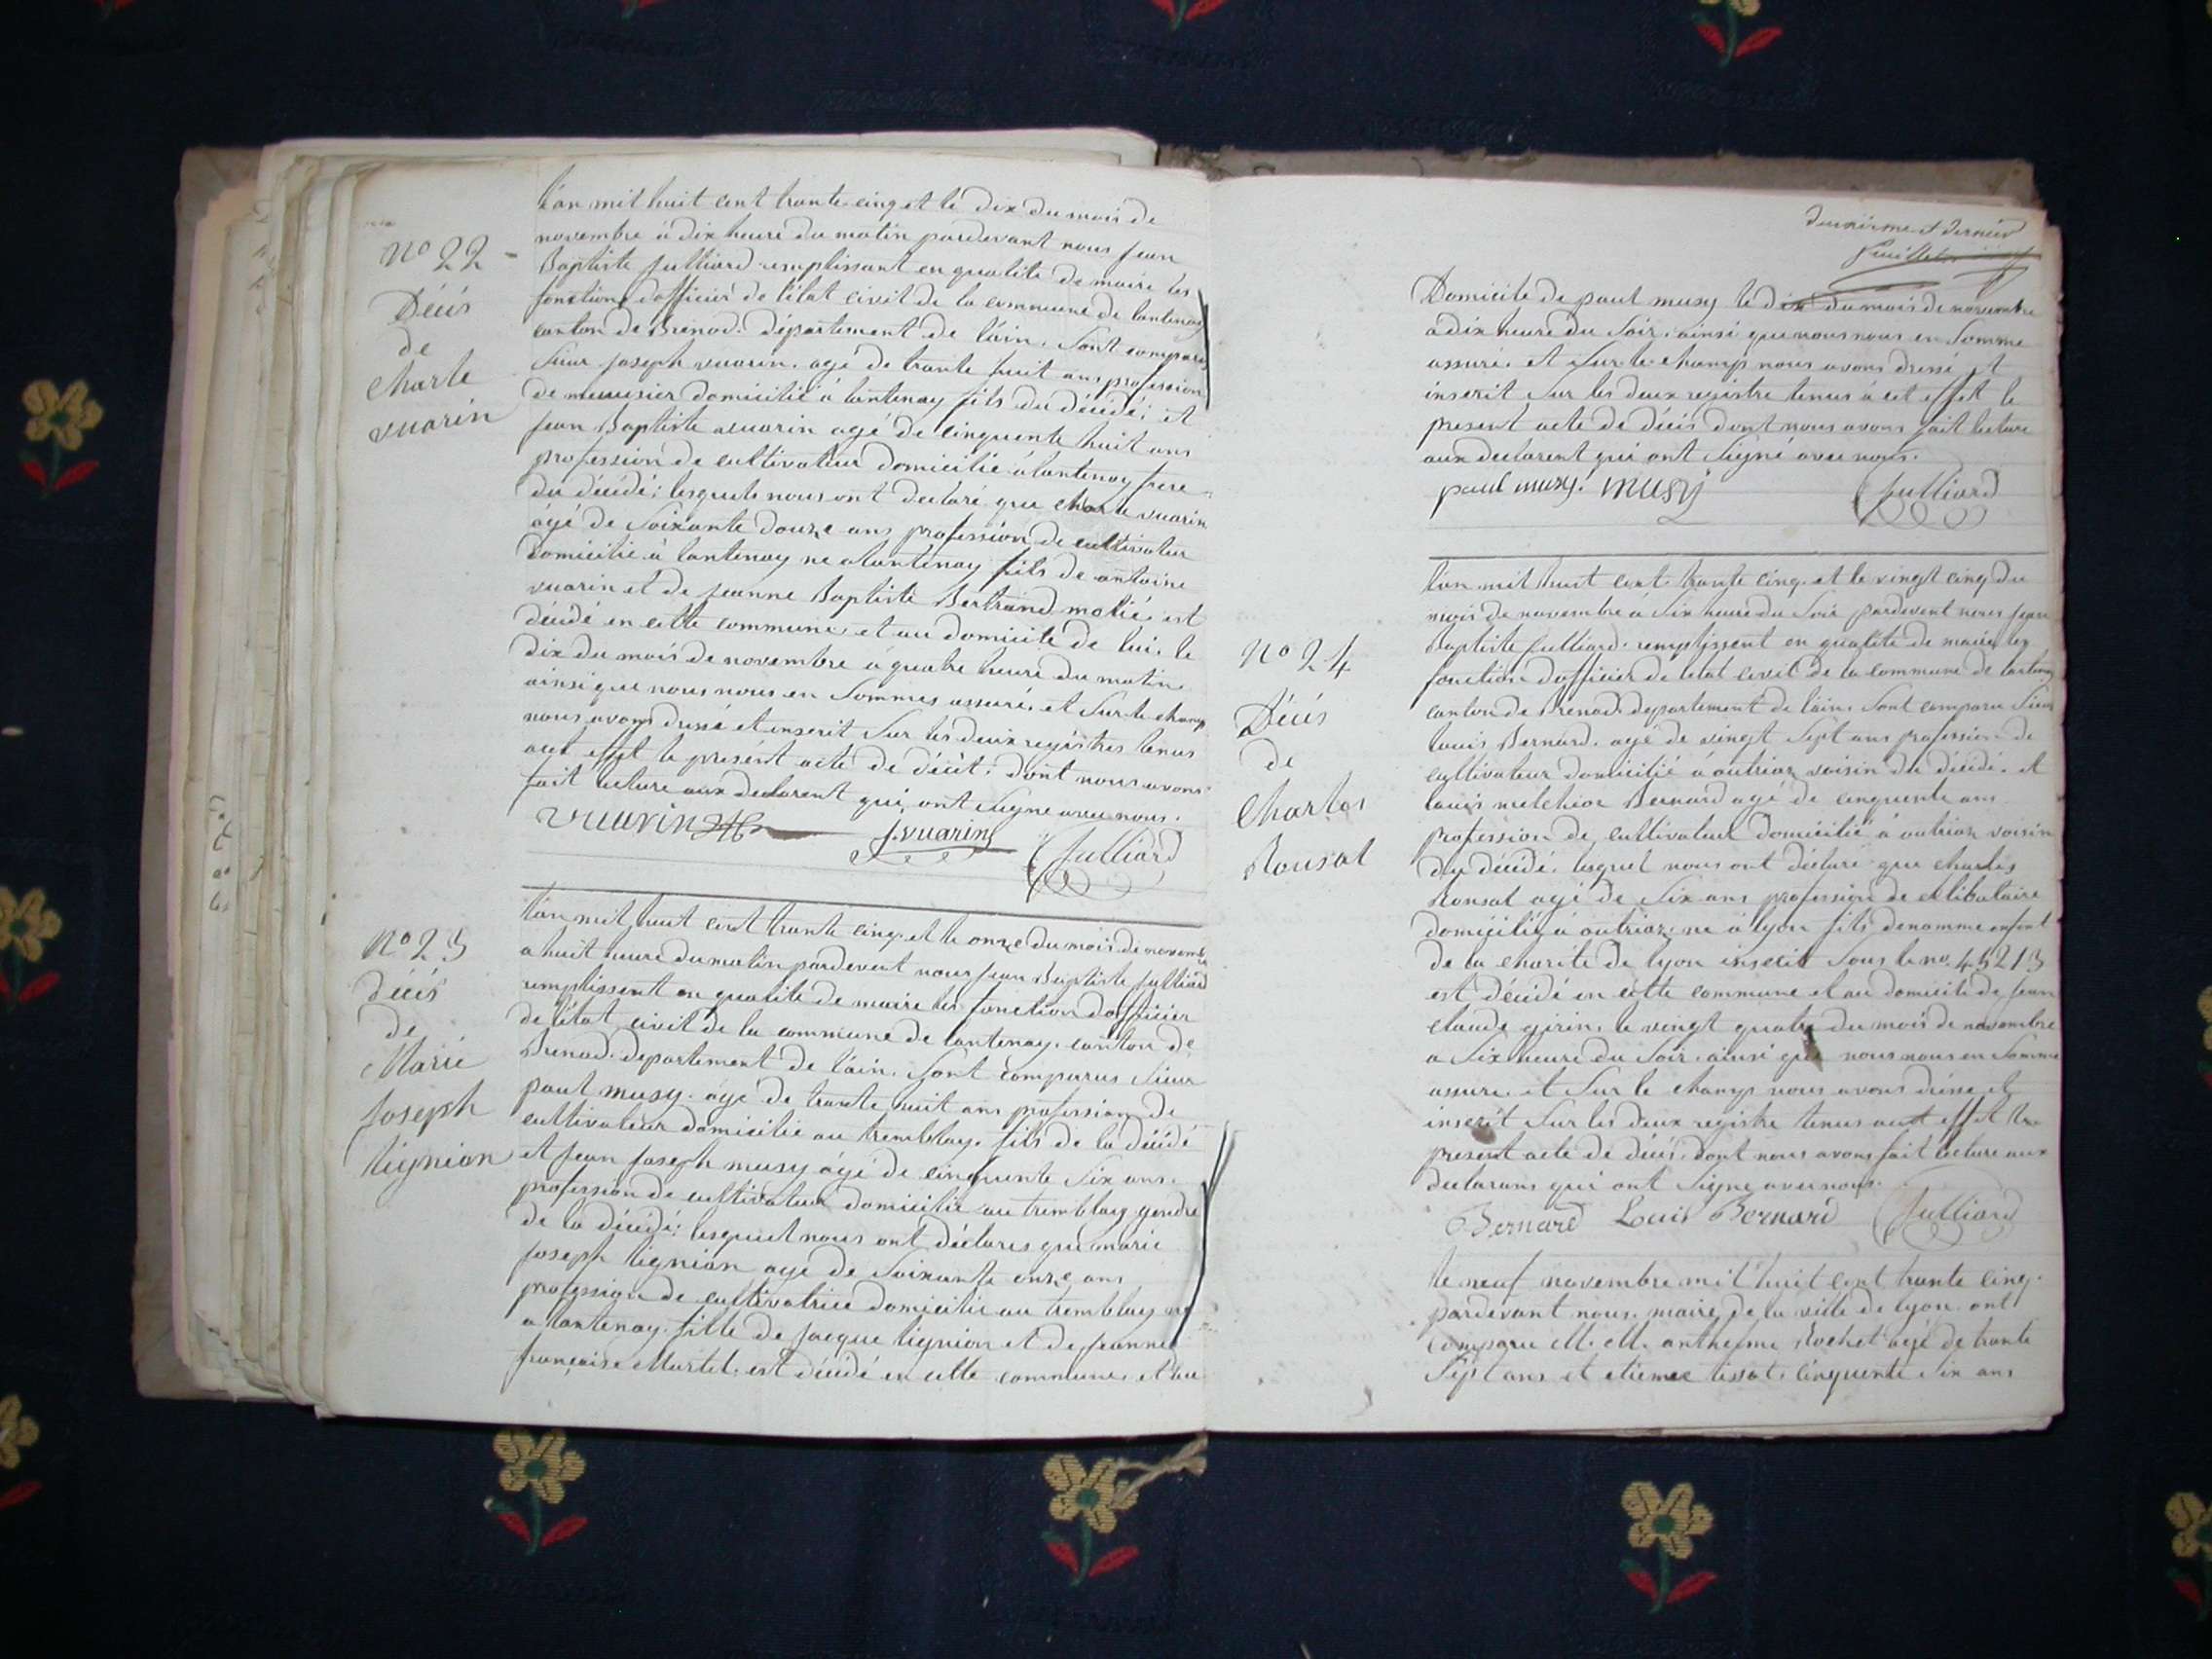 L'an mil huit cent trante cinq et le dix du mois de
novembre à dix heure du matin pardevant nous jean
Baptiste Julliard remplissant en qualité de maire les
fonctions d'officier de l'état civil de la commune de lantenay
canton de Brenod. département de l'ain. Sont comparus
Sieur joseph vuarin. agé de trante huit ans profession
de menusier domicilié à lantenay fils du décédé; et
jean Baptiste vuarin agé de cinquente huit ans
profession de cultivateur domicilié à lantenay frere
du décédé; lesquels nous ont declaré que charle vuarin
âgé de Soixante douze ans profession de cultivateur
domicilié à lantenay ne a lantenay fils de antoine
vuarin et de jeanne Baptiste Bertrand est
décédé en cette commune et au domicile de lui. le
dix du mois de novembre à quatre heure du matin
ainsi que nous nous en Sommes assuré. et Sur le champ
nous avons dressé et inscrit Sur les deux registres tenus
a cet effet le présent acte de décèt. dont nous avons
fait lecture aux declarent qui ont Signe avec nous.
vuarin j. vuarin Julliard
No 22
Décés
de
Charle
vuarin
l'an mil huit cent trante cinq. et le onze du mois de novembre
a huit heure du matin pardevent nous jean Baptiste Julliard
remplissent en qualité de maire les fonction d'officier
de l'état civil de la commune de lantenay. canton de
Brenod. departement de l'ain. Sont comparus Sieur
paul musy. âgé de trante huit ans profession de
cultivateur domicilié au tremblay. fils de la décédé
et jean joseph musy âgé de cinquente Six ans.
profession de cultivateur domicilié au tremblay gendre
de la décédé: lesquel nous ont déclares que marie
joseph tignion agé de Soixante onze ans
profession de cultivatrice domicilié au tremblay ne
a lantenay. fille de jacque tignion et de jeanne
françoise Martel. est décédé en cette commune. et au
No 23
Décés
de
Marie
joseph
tignion
deuxième et dernier
feuillet
Domicile de paul musy le dix du mois de novembre
a dix heure du Soir. ainsi que nous nous en Somme
assuré. et Sur le champ nous avons dressé et
inscrit Sur les deux registre tenus à cet effet le
present acte de décés dont nous avons fait lecture
aux declarent qui ont Signé avec nous.
paul musy. musy Julliard
l'an mil huit cent trante cinq. et le vingt cinq du
mois de novembre à Six heure du Soir pardevent nous jean
Baptiste Julliard. remplissent en qualité de maire les
fonction d'officier de l'état civil de la commune de lantenay
canton de Brenod. departement de l'ain. Sont comparu Sieur
louis Bernard. agé de vingt Sept ans profession de
cultivateur domicilié à outriaz voisin du décédé. et
louis melchior Bernard agé de cinquente ans
profession de cultivateur domicilié à outriaz voisin
du décédé. lesquel nous ont déclaré que charles
Ronsat agé de Six ans profession de celibataire
domicilié à outriaz. ne à lyon fils denomme enfant
de la charité de lyon inscrit Sous le no. 45213
est décédé en cette commune et au domicile de jean
claude girin. le vingt quatre du mois de novembre
a Six heure du Soir. ainsi que nous nous en Somme
assure. et Sur le champ nous avons dréssé et
inscrit Sur les deux registre tenus a cet effet le
present acte de décés. dont nous avons fait lecture aux
declarans qui ont Signe avec nous.
Bernard Louis Bernard Julliard
No 24
Décés
de
Charles
Ronsat
le neuf novembre mil huit cent trante cinq.
pardevant nous. maire de la ville de lyon. ont
comparu M. M. anthelme Rochet agé de trante
Sept ans et etienne tissot. cinquente Six ans